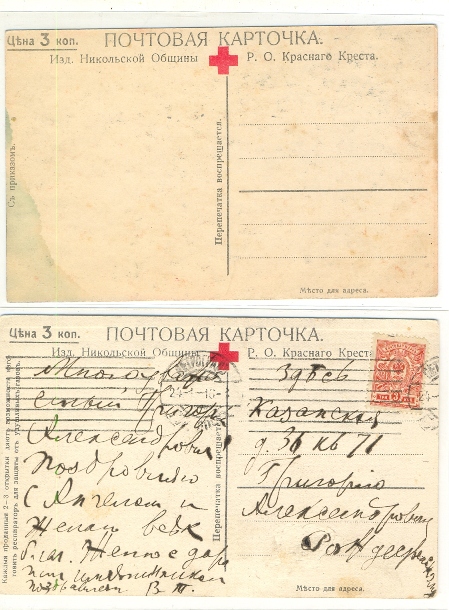 Цѣна 3 коп.
ПОЧТОВАЯ КАРТОЧКА.
Изд. Никольской Общины Р. О. Краснаго Креста.
Съ приказомъ.
Перепечатка воспрещается.
Мѣсто для адреса.
Цѣна 3 коп.
ПОЧТОВАЯ КАРТОЧКА.
Изд. Никольской Общины Р. О. Краснаго Креста
Каждыя проданныя 2–3 открытки даютъ возможность изготовить респираторъ для защиты отъ удушливыхъ газовъ.
Александрович!
Поздравляю
с Ангелом и
желаю всех
поздравляем В. Т.
Перепечатка воспрещается
Здѣсь
Казанская
д. 36 кв 71
Григорію
Александрович
Мѣсто для адреса.